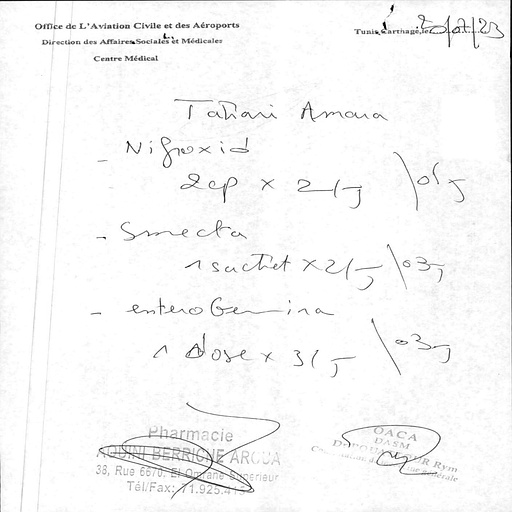 Office de L'Aviation Civile et des Aéroports
Direction des Affaires Sociales et Médicales
Centre Médical
Tunis Carthage, le 20/07/23
Amara
- Nifroxid
2cp x 2/j
- Smecta
1 sachet x 2/j \ 03j
- enteroGermina
1 dose x 3/j \ 03j
Pharmacie
BERRICHE AROUA
38, Rue 6670, El Omrane Superieur
Tél/Fax: 71.925.4
OACA
DASM
Rym
générale